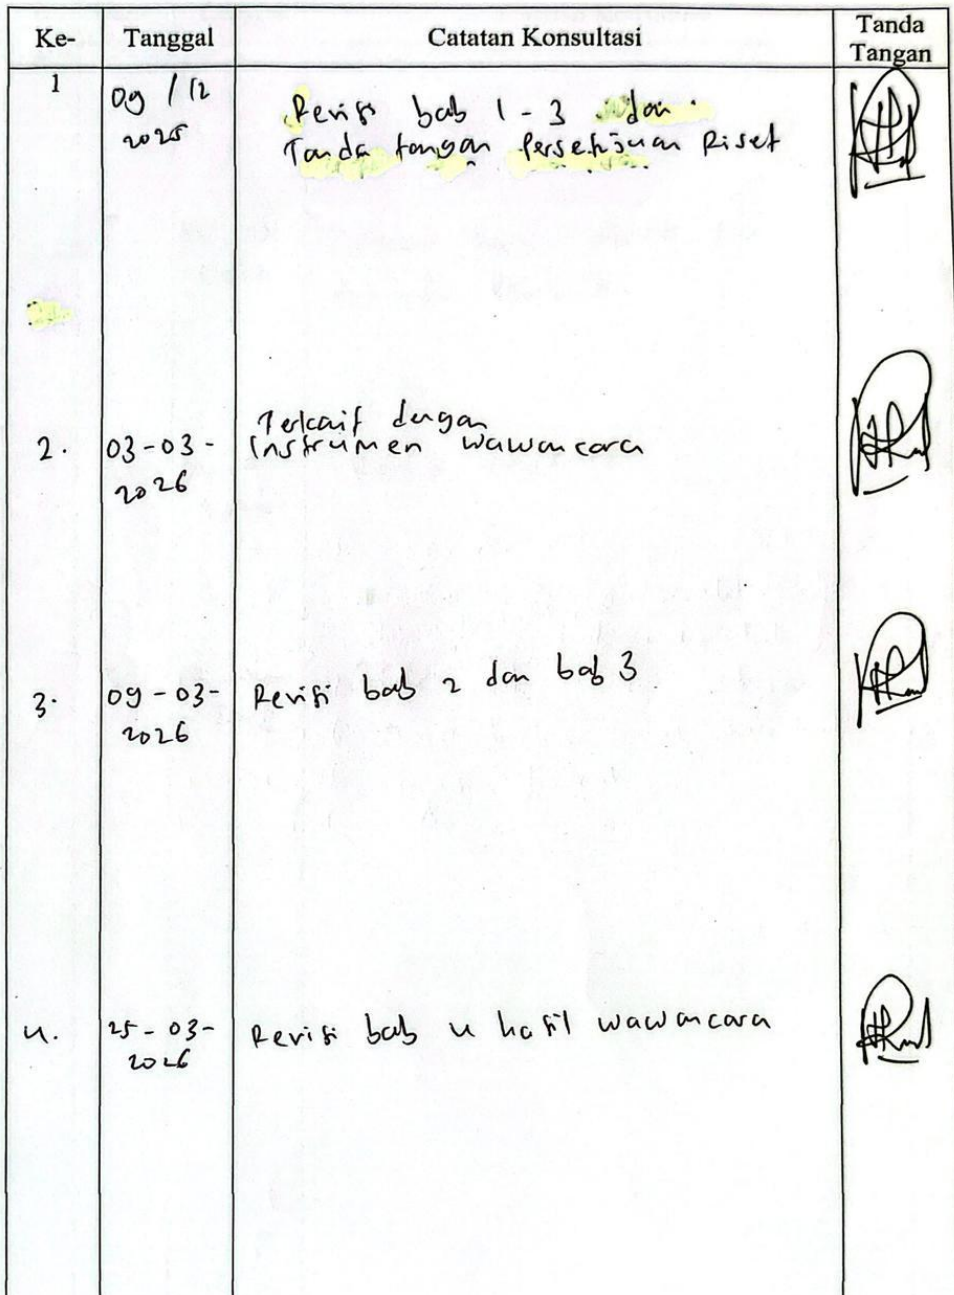 Ke- Tanggal Catatan Konsultasi Tanda Tangan
1 09/12 2025 Revisi bab 1-3 dan
Tanda tangan Persetujuan Riset
Terkait dengan
2. 03-03-2026 Instrumen wawancara
3. 09-03-2026 Revisi bab 2 dan bab 3
4. 25-03-2026 Revisi bab 4 hasil wawancara